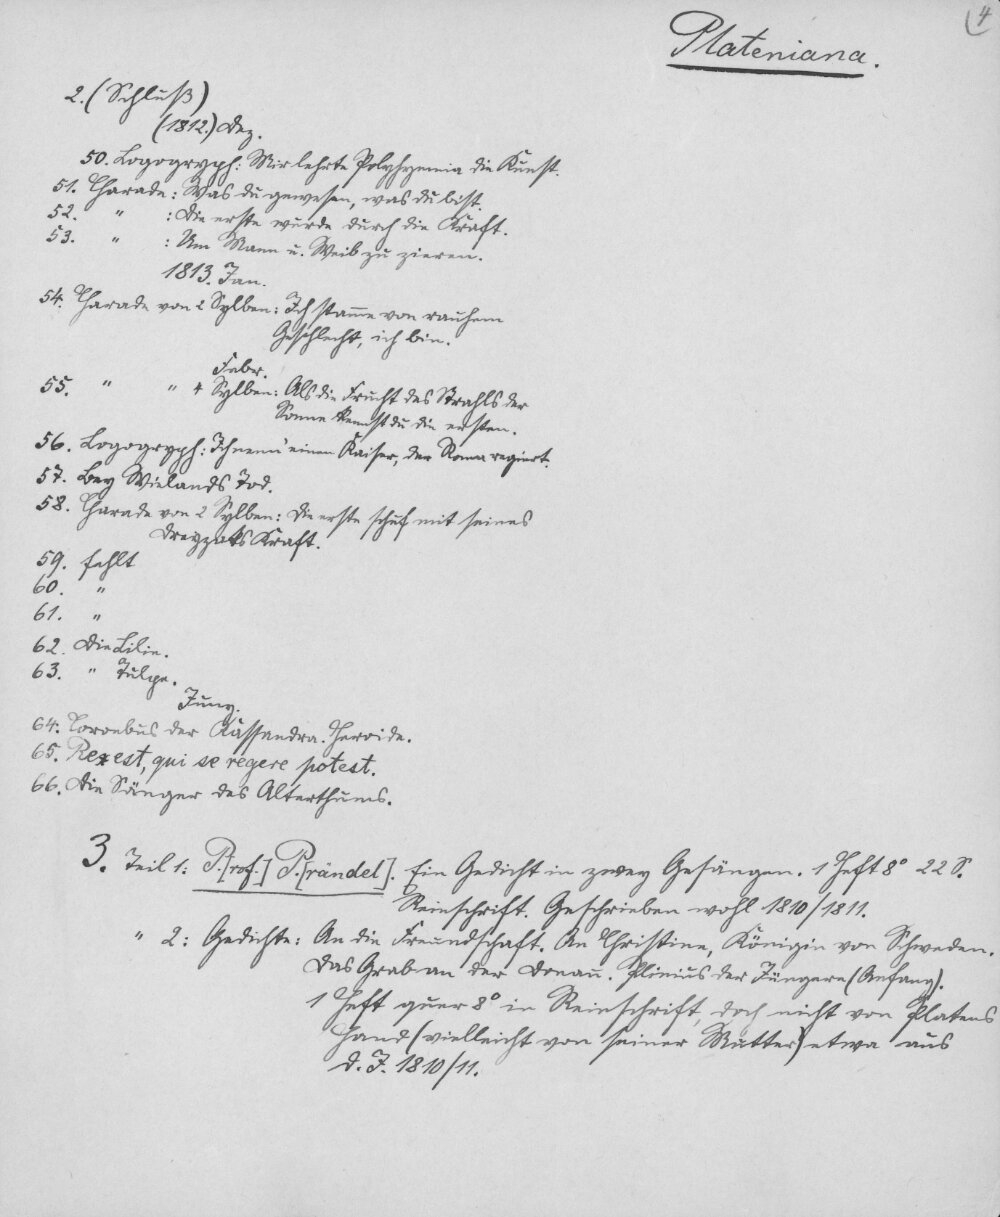 4
Plateniana.
2. (Schluß)
(1812.) Dez.
50. Logogryph: Mir lehrte Polyhymnia die Kunst.
51. Charade: Was du gewesen, was du bist.
52. " : Die erste wurde durch die Kraft.
53. " : Um Mann u. Weib zu zieren.
1813. Jan.
54. Charade von 2 Sylben: Ich stamme von rauhem
Geschlecht, ich bin.
Febr.
55. " " 4 Sylben: Als die Frucht des Strahls der
Sonne kennst du die ersten.
56. Logogryph: Ich nenn' einen Kaiser, der Roma regiert.
57. Bey Wielands Tod.
58. Charade von 2 Sylben: Die erste schuf mit seines
Dreyzaks Kraft.
59. fehlt
60. "
61. "
62. Die Lilie.
63. " Tulpe.
Juny.
64. Coroebus der Kassandra. Heroide.
65. Rex est, qui se regere potest.
66. Die Sänger des Alterthums.
3. Teil 1: P.[rof.] P.[rändel]. Ein Gedicht in zwey Gesängen. 1 Heft 8° 22 S.
Reinschrift. Geschrieben wohl 1810/1811.
" 2: Gedichte: An die Freundschaft. An Christine, Königin von Schweden.
Das Grab an der Donau. Plinius der Jüngere (Anfang).
1 Heft quer 8° in Reinschrift, doch nicht von Platens
Hand (vielleicht von seiner Mutter) etwa aus
d. J. 1810/11.